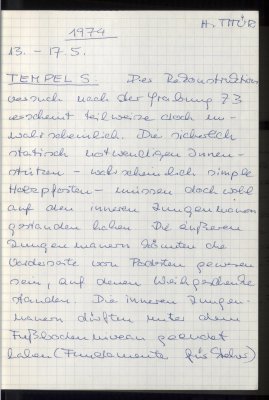 H. THÜR
1974
13. - 17. 5.
TEMPEL S. Der Rekonstruktions
versuch nach der Grabung 73
erscheint teilweise doch un-
wahrscheinlich. Die sicherlich
statisch notwendigen Innen-
stützen - wahrscheinlich simple
Holzpfosten - müssen doch wohl
auf den inneren Zungenmauern
gestanden haben. Die äußeren
Zungenmauern könnten die
Vorderseite von Podesten gewesen
sein, auf denen Weihgeschenke
standen. Die inneren Zungen-
mauern dürften unter dem
Fußbodenniveau geendet
haben (Fundamente für Steher)